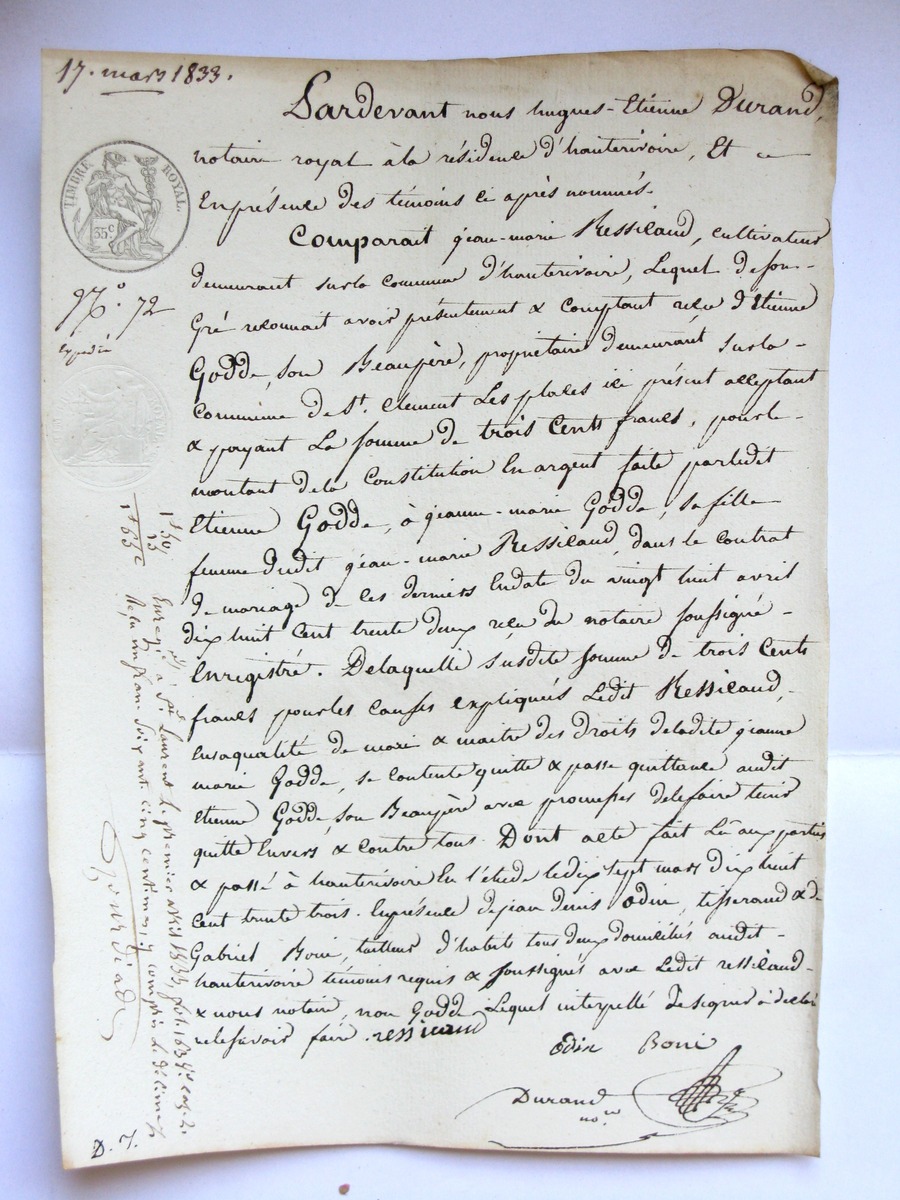 17. mars 1833.
Pardevant nous hugues-Etienne Durand,
notaire royal à la résidence d'hauterivoire, Et
En présence des témoins ci après nommés.
Comparait jean-marie Ressicaud, cultivateur
demeurant sur la commune d'hauterivoire, Lequel de son
Gré reconnait avoir présentement & comptant reçu d'Etienne
Godde, son Beaupère, propriétaire demeurant sur la
Commune de St. Clement Les places ici présent acceptant
& payant La somme de trois Cents francs, pour le
montant de la Constitution En argent faite par ledit
Etienne Godde, à jeanne-marie Godde, sa fille
femme dudit jean-marie Ressicaud, dans le contrat
de mariage de ces derniers En date du vingt huit avril
dix huit cent trente deux reçu du notaire soussigné
Enregistré. De laquelle susdite somme de trois Cents
francs pour les causes expliquées Ledit Ressicaud,
En sa qualité de mari & maitre des droits de ladite jeanne
marie Godde, se contente quitte & passe quittance audit
Etienne Godde, son Beaupère avec promesses de le faire tenir
quitte Envers & contre tous. Dont acte fait Lu aux parties
& passé à hauterivoire En l'étude le dix sept mars dix huit
Cent trente trois. En présence de jean denis Odin, tisserand & de
Gabriel Boni, tailleur d'habits tous deux domiciliés audit
hauterivoire témoins requis & soussignés avec Ledit ressicaud
& nous notaire, non Godde Lequel interpellé de signer a déclaré
ne le savoir faire. ressicaud
Odin Boni
Durand
no.re
TIMBRE ROYAL.
35 c
No. 72
Expedié
1f 50
15
1f 65c
Enregié à St. Laurent le premier avril 1833, fol. 163 Vo. case 2.
Reçu un franc soixante cinq centimes y compris le décime
D. J.